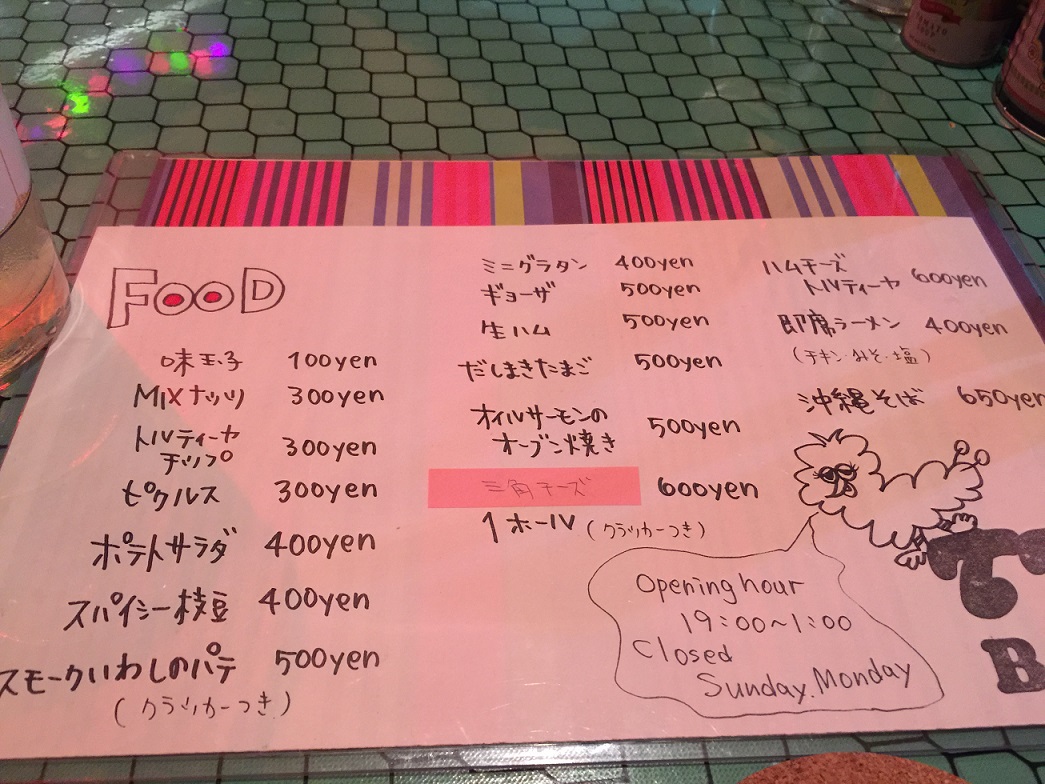 FOOD
味玉子 100yen
MIXナッツ 300yen
トルティーヤ
チップ 300yen
ピクルス 300yen
ポテトサラダ 400yen
スパイシー枝豆 400yen
スモークいわしのパテ 500yen
(クラッカーつき)
ミニグラタン 400yen
ギョーザ 500yen
生ハム 500yen
だしまきたまご 500yen
オイルサーモンの
オーブン焼き 500yen
三角チーズ 600yen
1ホール(クラッカーつき)
ハムチーズ
トルティーヤ 600yen
即席ラーメン 400yen
(チキン・みそ・塩)
沖縄そば 650yen
Opening hour
19:00~1:00
Closed
Sunday.Monday
B